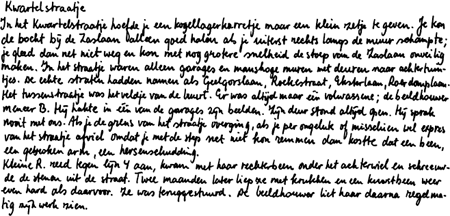 Kwartelstraatje
In het Kwartelstraatje hoefde je een kogellagerkarretje maar een klein zetje te geven. Je kon
de bocht bij de Zaslaan alleen goed halen als je uiterst rechts langs de muur schampte;
je gleed dan net niet weg en kon met nog grotere snelheid de stoep van de Zaslaan onveilig
maken. In het straatje waren alleen garages en manshoge muren met deuren naar achtertuin-
tjes. De echte straten hadden namen als Geelgorslaan, Roekstraat, Eksterlaan, Roerdomplaan.
Het tussenstraatje was het veldje van de buurt. Er was altijd maar één volwassene; de beeldhouwer
meneer B. Hij hakte in één van de garages zijn beelden. Zijn deur stond altijd open. Hij sprak
nooit met ons. Als je de grens van het straatje overging, als je per ongeluk of misschien wel expres
van het straatje afviel omdat je met de step net niet kon remmen dan kostte dat een been,
een gebroken arm, een hersenschudding.
Kleine R. reed tegen lijn 4 aan, kwam met haar rechterbeen onder het achterwiel en schreeuw-
de de stenen uit de straat. Twee maanden later liep ze met krukken en een kunstbeen weer
even hard als daarvoor. Ze was teruggestuurd. De beeldhouwer liet haar daarna regelma-
tig zijn werk zien.